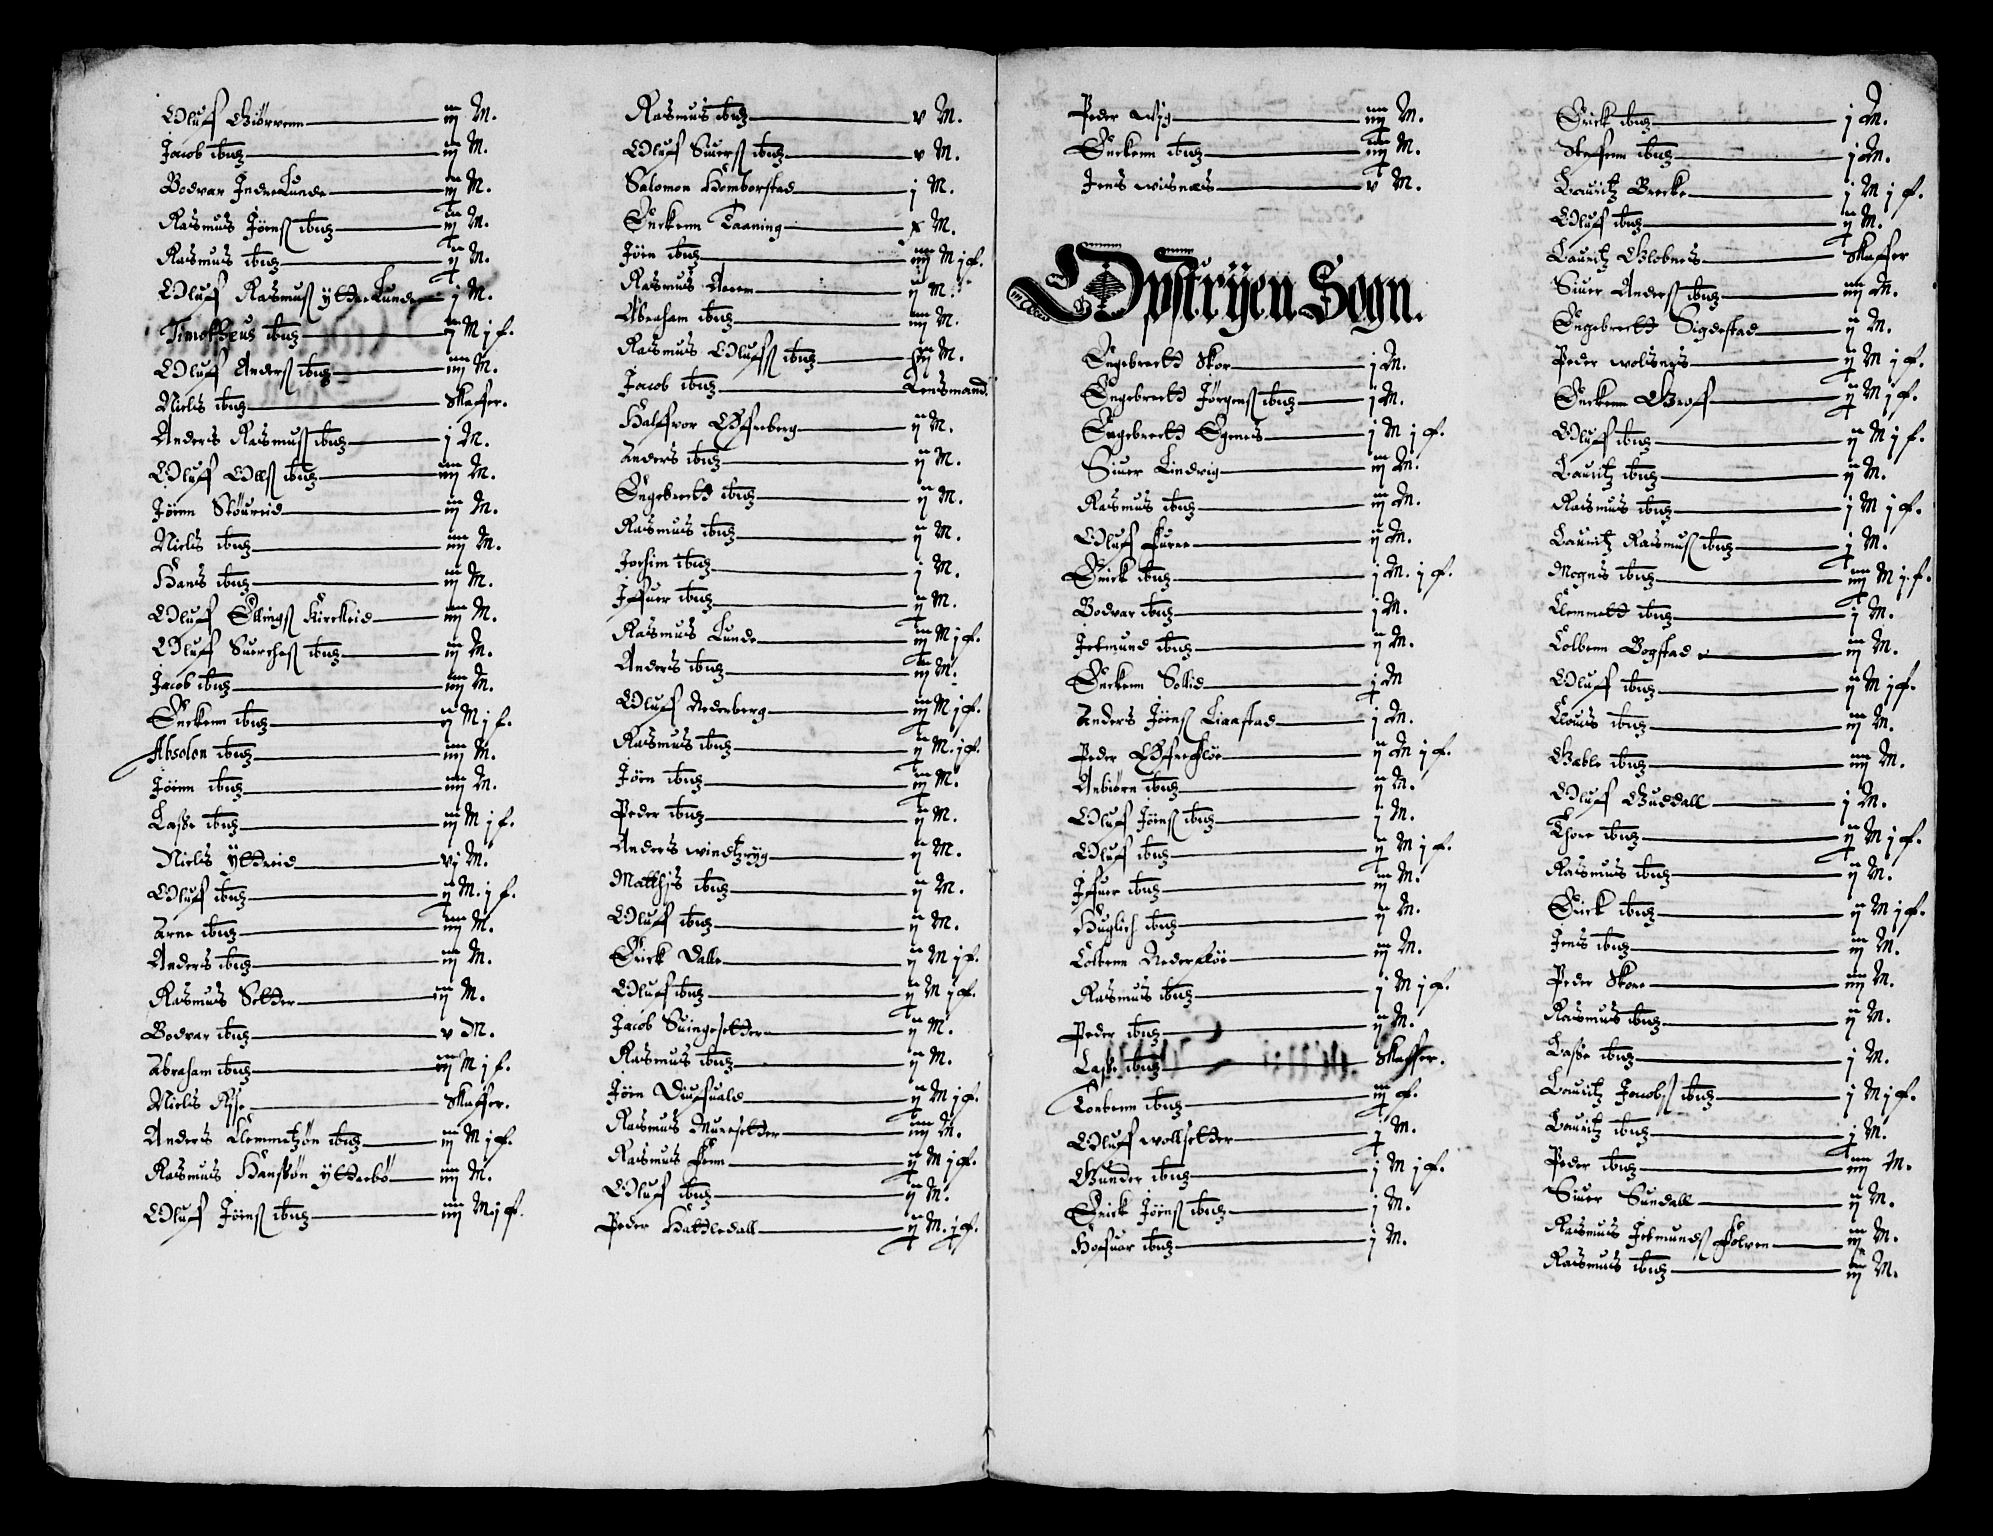 Oluff Giörvenn iij M.
Jacob ibid iij M.
Bodvar IndreLunde iij M.
Rasmus Jörnß ibid iij M.
Rasmus ibid ij M.
Oluff Rasmuß ytterLunde j M.
Timotheus ibid ij M j f.
Oluff Anderß ibid iiij M.
Niels ibid Skaffer.
Anders Rasmuß ibid j M.
Oluff Ollß ibid iiij M.
Jörnn Störeid iij M.
Niels ibid iiij M.
Hans ibid iij M.
Oluff Ellingß Kirckeid iiij M.
Oluff Suercheß ibid iij M.
Jacob ibid iiij M.
Enckenn ibid ij M j f.
Absolon ibid iiij M.
Jörnn ibid iiij M.
Laße ibid iij M j f.
Niels ytreid vj M.
Oluff ibid ij M. j f.
Arne ibid iiij M.
Anders ibid iij M.
Rasmus Setter iij M.
Bodvar ibid v M.
Abraham ibid iij M j f.
Niels Ryse Skaffer.
Anders Clemmetzön ibid iij M j f.
Rasmus Hansßön ytterbö iiij M.
Oluff Jörnß ibid iiij M. j f.
Rasmus ibid v M.
Oluff Siuerß ibid v M.
Salomon Homborstad j M.
Enckenn Taaning x M.
Jörn ibid iiij M j f.
Rasmus Aaeem ij M.
Abraham ibid iiij M.
Rasmus Oluffß ibid iij M.
Jacob ibid Lensmand.
Halffvor Öffreberg ij M.
Anders ibid ij M.
Engebrectt ibid ij M.
Rasmus ibid ij M.
Jochim ibid j M.
Iffuer ibid ij M.
Rasmus Lunde iij M j f.
Anders ibid iij M.
Oluff Nederberg iij M j f.
Rasmus ibid ij M. j f.
Jörn ibid iij M.
Peder ibid ij M.
Anders windtzryg ij M.
Matthjs ibid ij M.
Oluff ibid ij M.
Erick Dalle ij M j f.
Oluff ibid ij M j f.
Jacob Suingesetter ij M.
Rasmus ibid ij M.
Jörn Duffuald ij M j f.
Rasmus Muresetter iiij M.
Rasmus Fenn ij M j f.
Oluff ibid ij M.
Peder Hattledall ij M. j f.
Peder Wjg iiij M.
Enckenn ibid iiij M.
Jens Wisnæs v M.
Opstryen Sogn.
Engebrectt Skor j M.
Engebrectt Jörgenß ibid j M.
Engebrectt Egenes j M j f.
Siuer Lindvig iij M.
Rasmus ibid iij M.
Oluff Furee ij M.
Erick ibid j M. j f.
Bodvar ibid j M.
Jetmund ibid ij M.
Enckenn Sollid j M
Anders Jörnß Liaastad j M.
Peder Öffreflöe ij M j f.
Anbiörn ibid ij M.
Oluff Jörnß ibid j M.
Oluff ibid ij M j f.
Iffuer ibid iij M.
Huglich ibid ij M.
Colbenn Nederflöe iij M.
Rasmus ibid j M j f.
Peder ibid ij M.
Laße ibid Skaffer.
Torbenn ibid iij f.
Oluff Wollsetter j M.
Gunder ibid j M j f.
Erick Jörnß ibid j M.
Hoffuar ibid j M.
9
Erick ibid j M.
Steffenn ibid j M.
Lauritz Brecke j M j f.
Oluff ibid ij M.
Lauritz Globnes Skaffer
Siuer Anderß ibid iiij M.
Engebrectt Sigdestad ij M.
Peder Wolsnes ij M j f.
Enckenn Groff ij M j f.
Oluff ibid ij M j f.
Lauritz ibid ij M.
Rasmus ibid j M j f.
Lauritz Rasmuß ibid j M.
Mogns ibid iiij M j f.
Clemmett ibid j M.
Colbenn Bogstad iij M.
Oluff ibid ij M j f.
Clouis ibid iij M.
Gable ibid iiij M.
Oluff Guddall j M.
Thore ibid ij M j f.
Rasmus ibid ij M.
Erick ibid ij M j f.
Jens ibid iij M.
Peder Skore iiij M.
Rasmus ibid ij M.
Laße ibid j M.
Lauritz Jacobß ibid j M j f.
Lauritz ibid j M.
Peder ibid iiij M.
Siuer Sundall ij M.
Rasmus Jetmundß Folven iij M.
Rasmus ibid iij M.